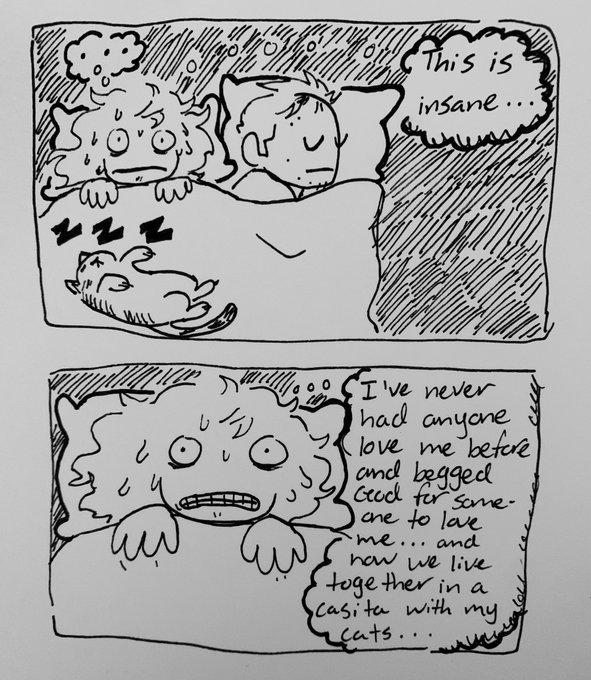 This is
insane...
Z Z Z
I've never
had anyone
love me before
and begged
God for some-
one to love
me... and
now we live
together in a
casita with my
cats...